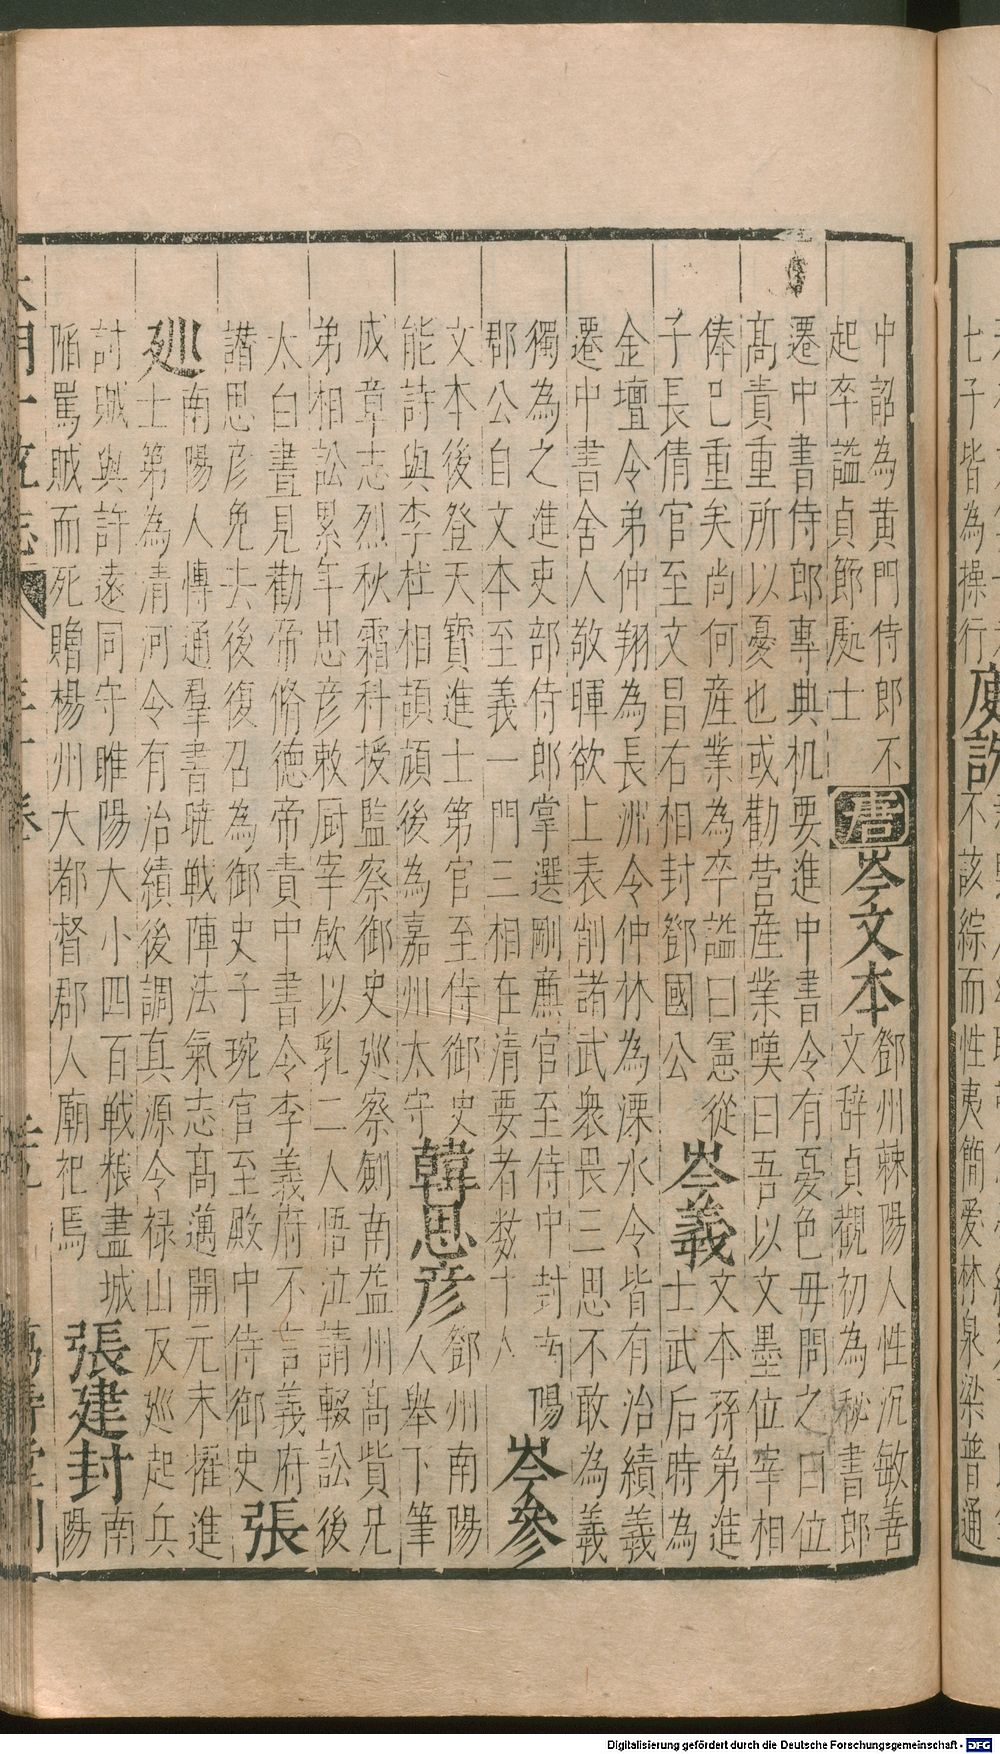 七子皆為操行
庾詵
不該綜而性夷簡愛林泉梁普通
中詔為黄門侍郎不
起卒謚貞節處士
唐
岑文本
鄧州棘陽人性沉敏善
文辭貞觀初為秘書郎
遷中書侍郎專典机要進中書令有憂色毋問之曰位
高責重所以憂也或勸營産業嘆曰吾以文墨位宰相
俸已重矣尚何産業為卒謚曰憲從
子長倩官至文昌右相封鄧國公
岑義
文本孫第進
士武后時為
金壇令弟仲翔為長洲令仲林為溧水令皆有治績義
遷中書舍人敬暉欲上表削諸武衆畏三思不敢為義
獨為之進吏部侍郎掌選剛㢘官至侍中封南陽
郡公自文本至義一門三相在清要者数十人
岑參
文本後登天寳進士第官至侍御史
能詩與李杜相頡頏後為嘉州太守
韓思彦
鄧州南陽
人舉下筆
成章志烈秋霜科授監察御史廵察劍南益州高貲兄
弟相訟累年思彦敕厨宰飲以乳二人悟泣請輟訟後
太白晝見勸帝脩德帝責中書令李義府不言義府
譖思彦免去後復召為御史子琬官至殿中侍御史
張
廵
南陽人慱通羣書曉戰陣法氣志高邁開元末擢進
士第為清河令有治績後調真源令禄山反廵起兵
討賊與許遠同守睢陽大小四百戰粮盡城
陷罵賊而死贈楊州大都督郡人廟祀焉
張建封
南
陽
Digitalisierung gefördert durch die Deutsche Forschungsgemeinschaft - DFG